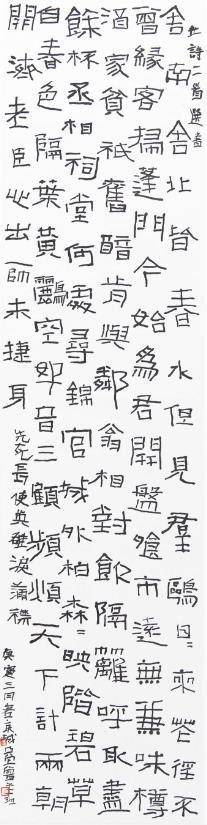 杜詩二首
舍南舍北皆春水但見羣鷗日〻來花徑不
曾緣客掃蓬門今始為君開盤飧市遠無兼味樽
酒家貧祇舊醅肯與鄰翁相對飲隔籬呼取盡
餘杯丞相祠堂何處尋錦官城外柏森〻映階碧草
自春色隔葉黃鸝空好音三顧頻煩天下計兩朝
開濟老臣心出師未捷身
先死長使英雄淚滿襟